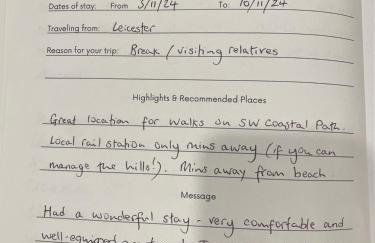 Dates of stay: From 3/11/24 To: 10/11/24
Traveling from: Leicester
Reason for your trip: Break / visiting relatives
Highlights & Recommended Places
Great location for walks on SW Coastal Path.
Local rail station only mins away (if you can
manage the hills!). Mins away from beach
Message
Had a wonderful stay - very comfortable and
well-equipped